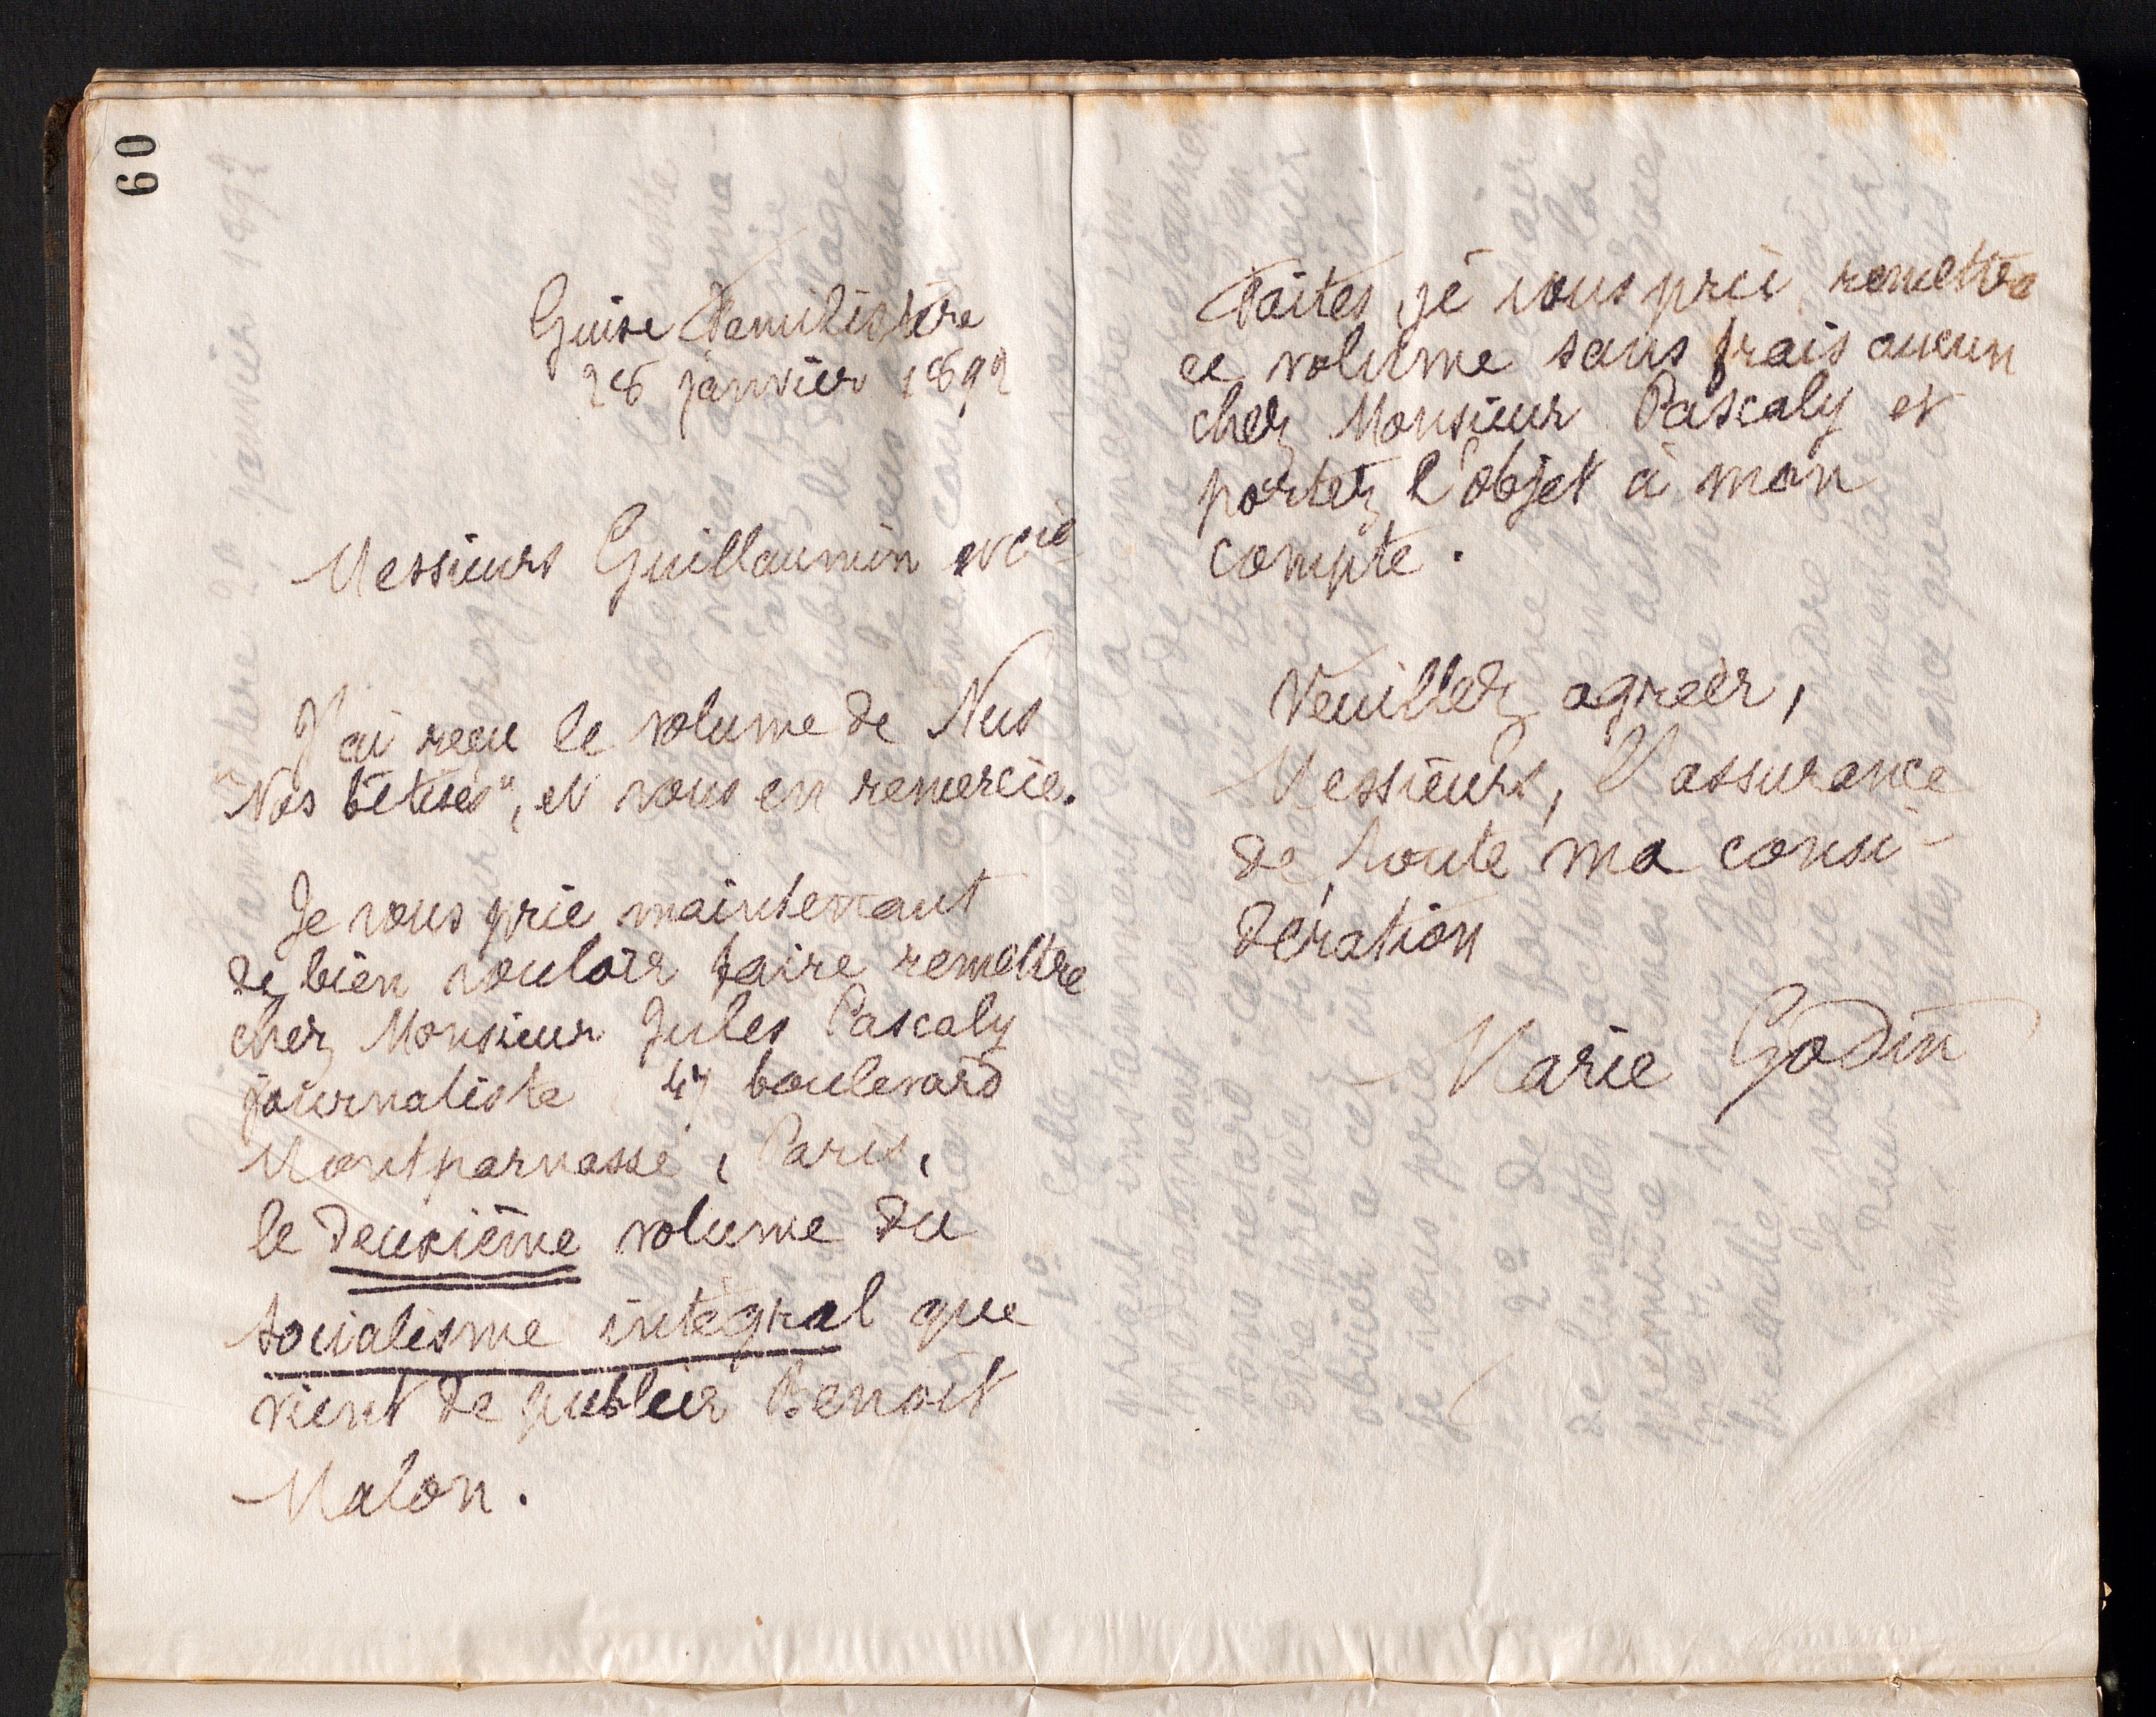 60
Guise Familistère
28 janvier 1892
Messieurs Guillaumin et Cie
J'ai reçu le volume de Nus
"Nos bêtises", et vous en remercie.
Je vous prie maintenant
de bien vouloir faire remettre
chez Monsieur Jules Pascaly
journaliste, 47 boulevard
Montparnasse, Paris,
le deuxième volume du
socialisme intégral que
vient de publier Benoît
Malon.
Faites, je vous prie, remettre
ce volume sans frais aucun
chez Monsieur Pascaly et
portez l'objet à mon
compte.
Veuillez agréer,
Messieurs, l'assurance
de toute ma consi-
dération
Marie Godin